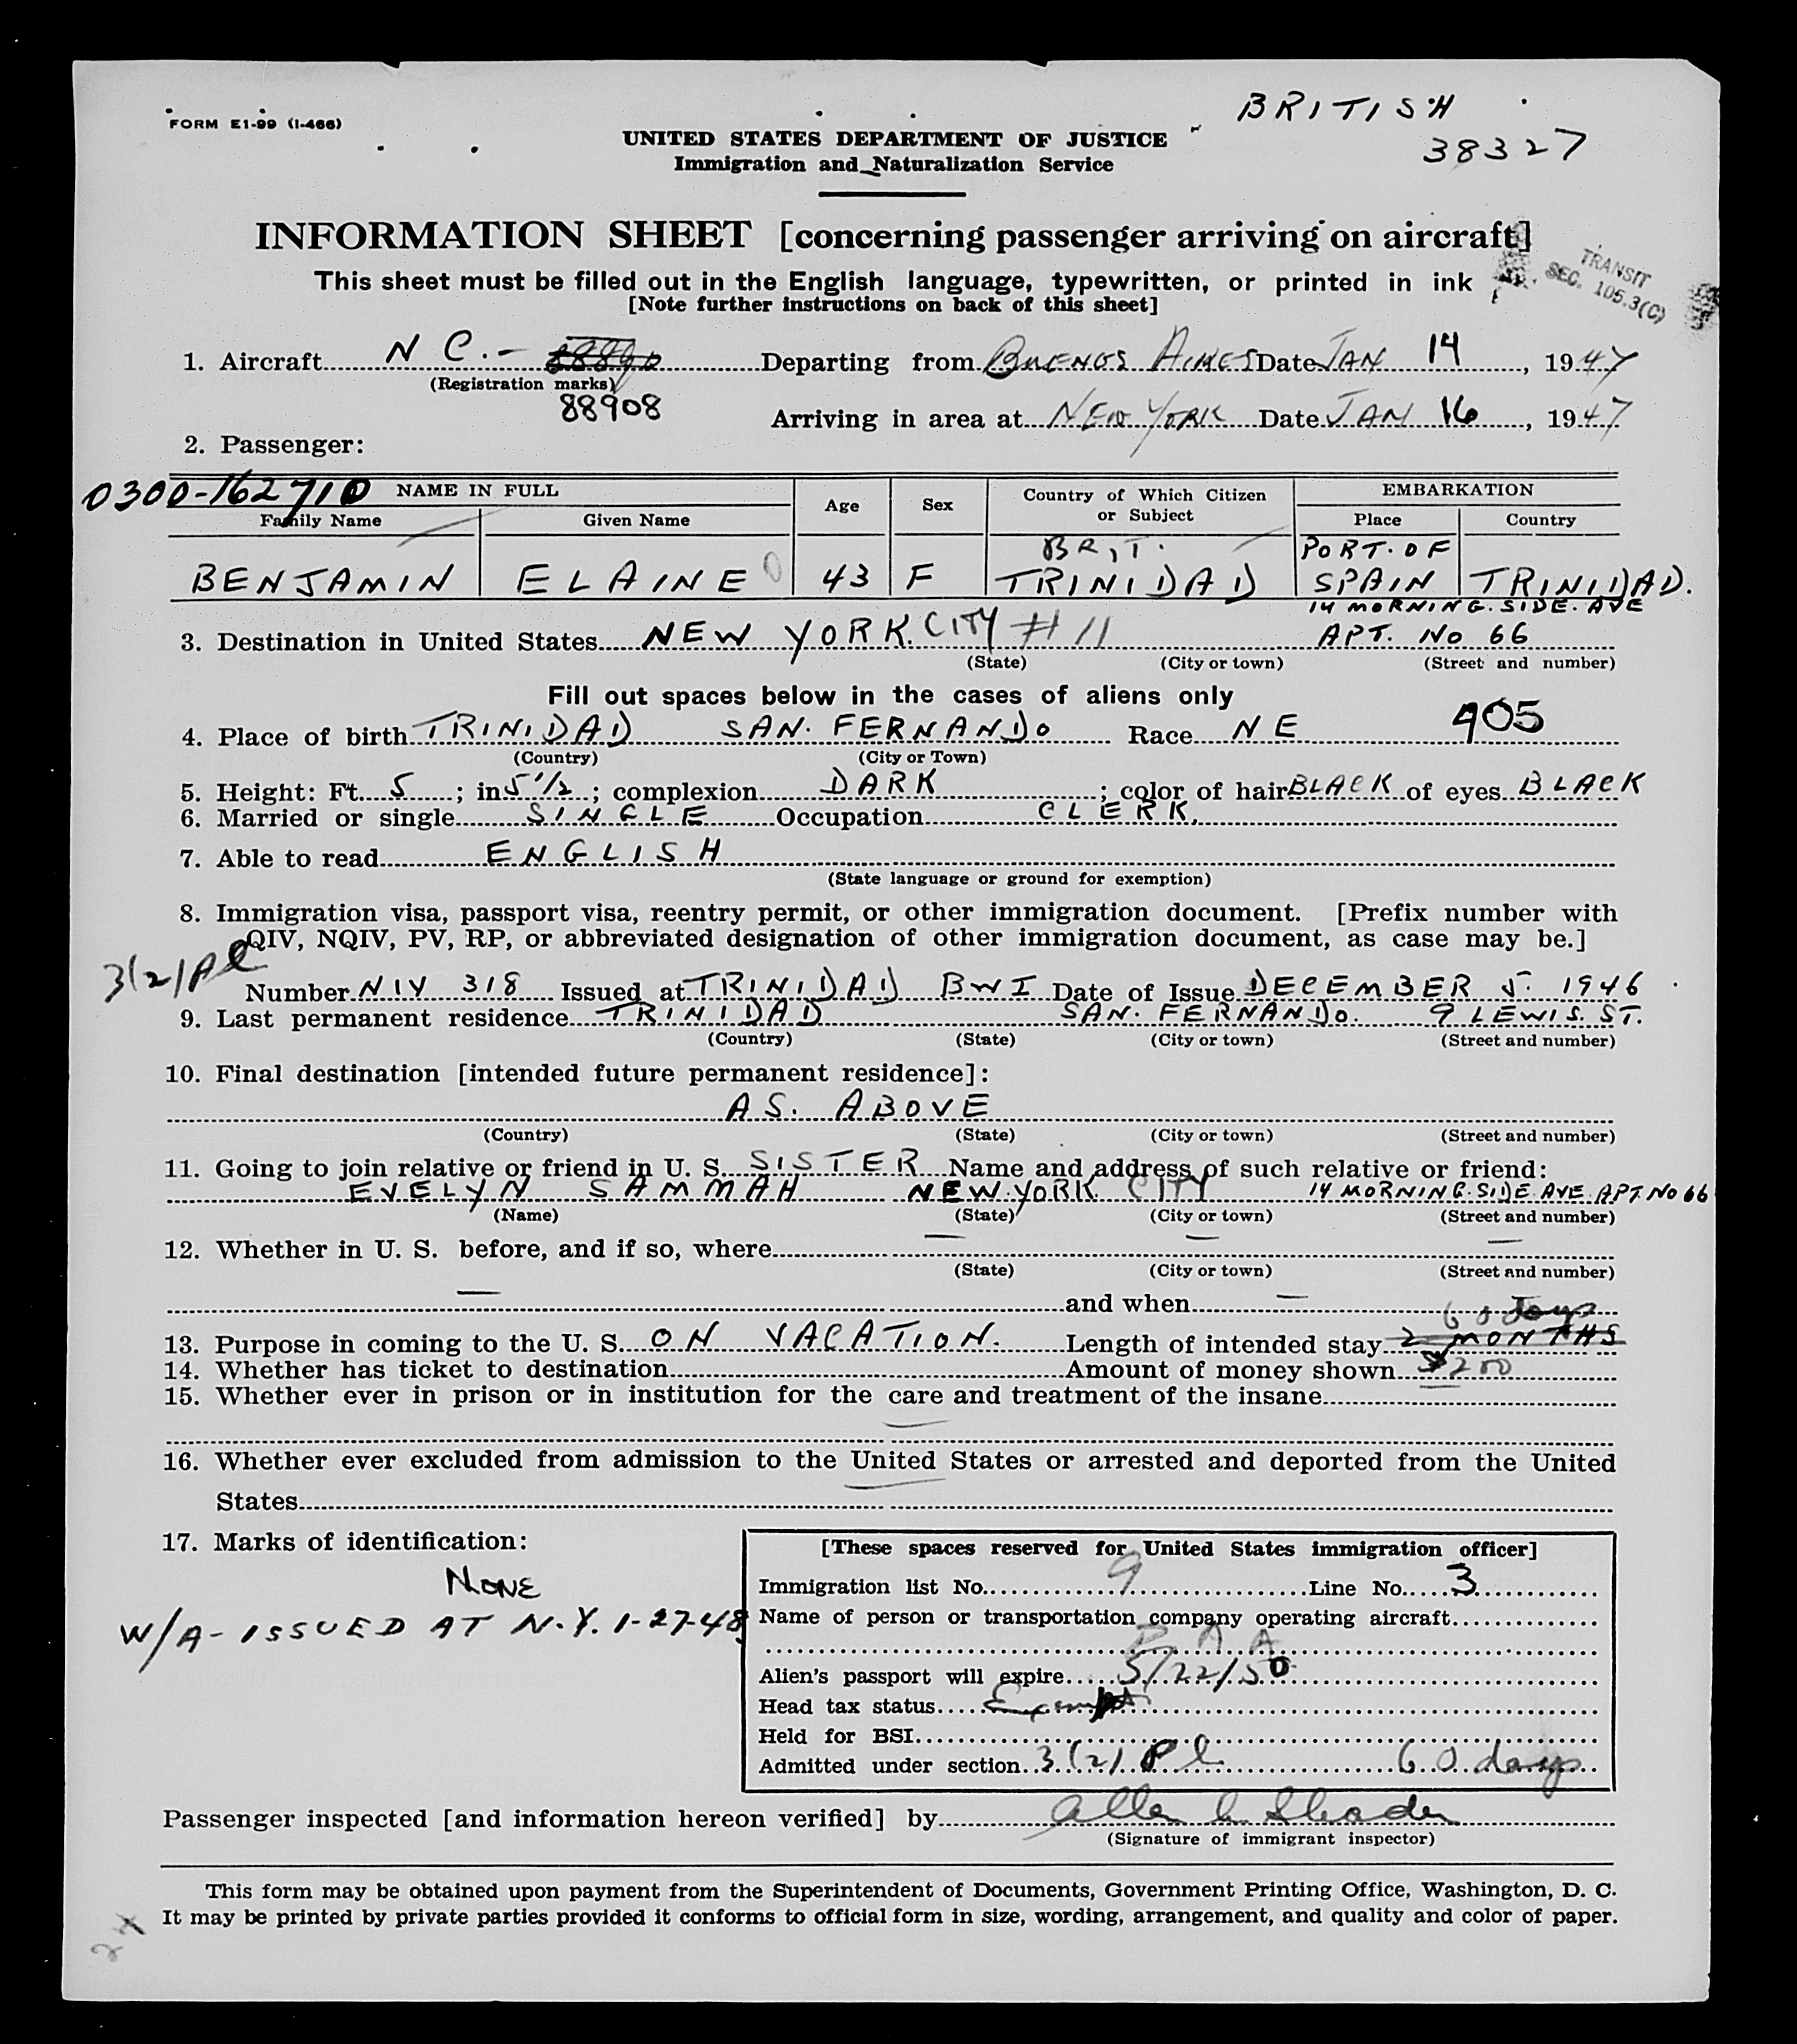 FORM E1-99 (I-466)
BRITISH
38327
UNITED STATES DEPARTMENT OF JUSTICE
Immigration and Naturalization Service
INFORMATION SHEET [concerning passenger arriving on aircraft]
This sheet must be filled out in the English language, typewritten, or printed in ink
[Note further instructions on back of this sheet]
TRANSIT
SEC. 105.3(C)
1. Aircraft NC.- Departing from BUENOS AIRES Date JAN 14, 1947
(Registration marks)
88908
Arriving in area at NEW YORK Date JAN 16, 1947
2. Passenger:
0300-162710 NAME IN FULL Age Sex Country of Which Citizen or Subject EMBARKATION
Family Name Given Name Place Country
BENJAMIN ELAINE 43 F BRIT. TRINIDAD PORT. OF SPAIN TRINIDAD.
14 MORNING. SIDE. AVE
3. Destination in United States NEW YORK. CITY # 11 APT. No 66
(State) (City or town) (Street and number)
Fill out spaces below in the cases of aliens only
4. Place of birth TRINIDAD SAN. FERNANDO Race NE 905
(Country) (City or Town)
5. Height: Ft. 5; in 5 1/2; complexion DARK; color of hair BLACK of eyes BLACK
6. Married or single SINGLE Occupation CLERK.
7. Able to read ENGLISH
(State language or ground for exemption)
8. Immigration visa, passport visa, reentry permit, or other immigration document. [Prefix number with
QIV, NQIV, PV, RP, or abbreviated designation of other immigration document, as case may be.]
3(2)Pl
Number NIV 318 Issued at TRINIDAD BWI Date of Issue DECEMBER 5. 1946
9. Last permanent residence TRINIDAD SAN. FERNANDO. 9 LEWIS. ST.
(Country) (State) (City or town) (Street and number)
10. Final destination [intended future permanent residence]:
AS. ABOVE
(Country) (State) (City or town) (Street and number)
11. Going to join relative or friend in U. S. SISTER Name and address of such relative or friend:
EVELYN SAMMAH NEW. YORK. CITY 14 MORNING. SIDE. AVE. APT. No 66
(Name) (State) (City or town) (Street and number)
12. Whether in U. S. before, and if so, where — — —
(State) (City or town) (Street and number)
— and when —
60 days
13. Purpose in coming to the U. S. ON VACATION. Length of intended stay 2 MONTHS
14. Whether has ticket to destination Amount of money shown $200
15. Whether ever in prison or in institution for the care and treatment of the insane
—
16. Whether ever excluded from admission to the United States or arrested and deported from the United
States —
17. Marks of identification:
NONE
W/A- ISSUED AT N.Y. 1-27-48
[These spaces reserved for United States immigration officer]
Immigration list No. 9 Line No. 3
Name of person or transportation company operating aircraft
Alien's passport will expire 5/22/50
Head tax status Exempt
Held for BSI
Admitted under section 3(2) Pl 60 days
Passenger inspected [and information hereon verified] by
(Signature of immigrant inspector)
This form may be obtained upon payment from the Superintendent of Documents, Government Printing Office, Washington, D. C.
It may be printed by private parties provided it conforms to official form in size, wording, arrangement, and quality and color of paper.